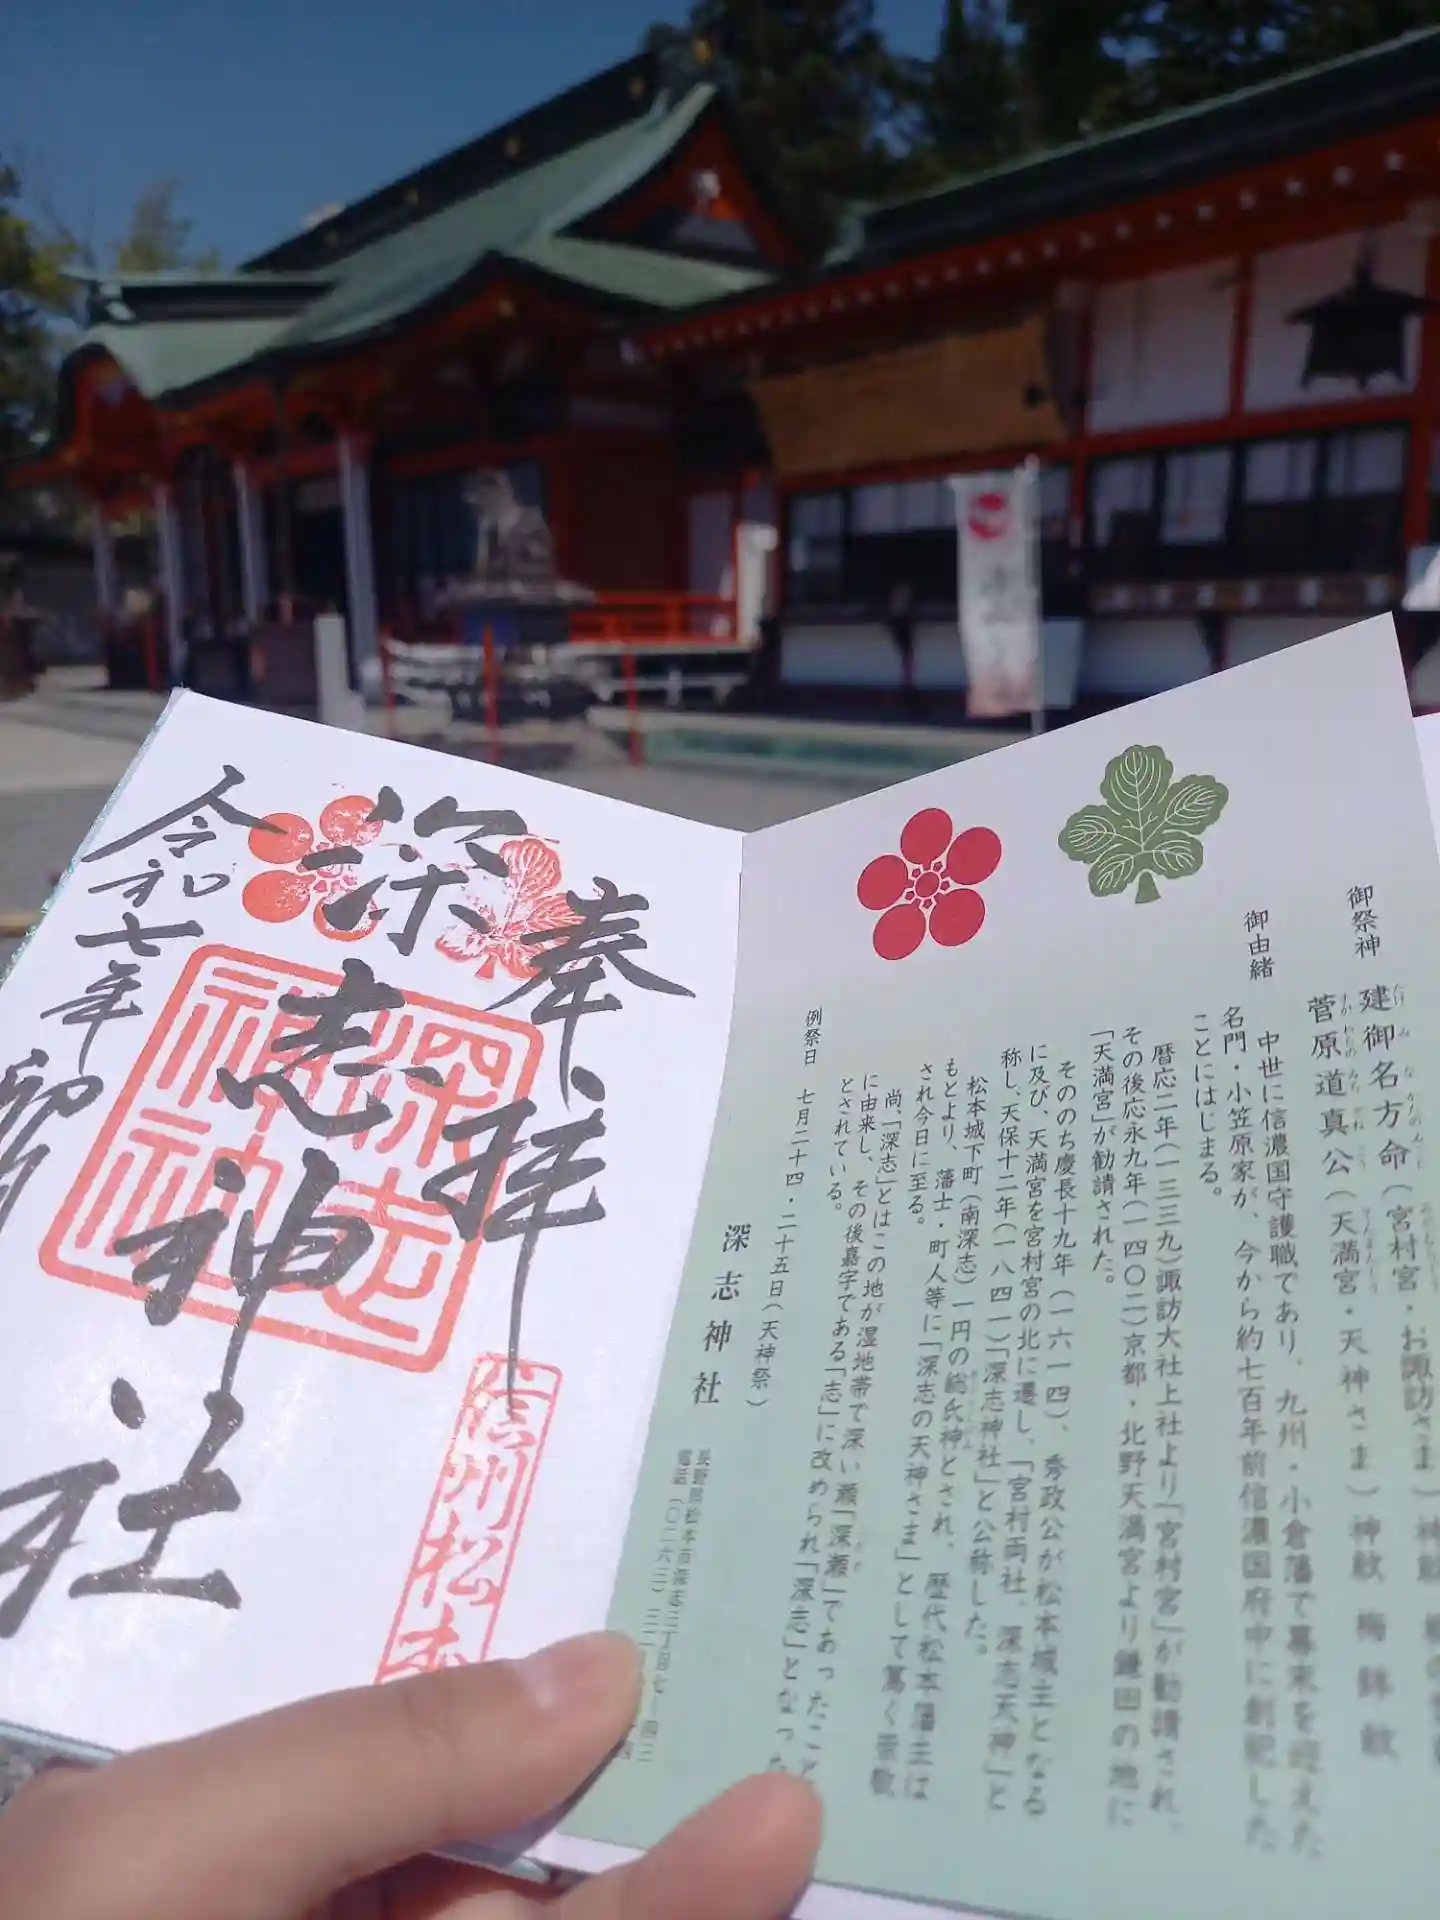 御祭神
建御名方命(宮村宮・お諏訪さま)神紋
菅原道真公(天満宮・天神さま)神紋 梅鉢紋
御由緒
中世に信濃国守護職であり、九州・小倉藩で幕末を迎えた
名門・小笠原家が、今から約七百年前信濃国府中に創祀した
ことにはじまる。
暦応二年(一三三九)諏訪大社上社より「宮村宮」が勧請され、
その後応永九年(一四〇二)京都・北野天満宮より鎌田の地に
「天満宮」が勧請された。
そののち慶長十九年(一六一四)、秀政公が松本城主となる
に及び、天満宮を宮村宮の北に遷し、「宮村両社、深志天神」と
称し、天保十二年(一八四一)「深志神社」と公称した。
松本城下町(南深志)一円の総氏神とされ、歴代松本藩主は
もとより、藩士・町人等に「深志の天神さま」として篤く崇敬
され今日に至る。
尚、「深志」とはこの地が湿地帯で深い瀬「深瀬」であったこと
に由来し、その後嘉字である「志」に改められ「深志」となった
とされている。
例祭日 七月二十四・二十五日(天神祭)
深志神社
長野県松本市深志三丁目七ー四三
電話(〇二六三)三二
奉拝
深志神社
令和七年
深志神社
信州松本